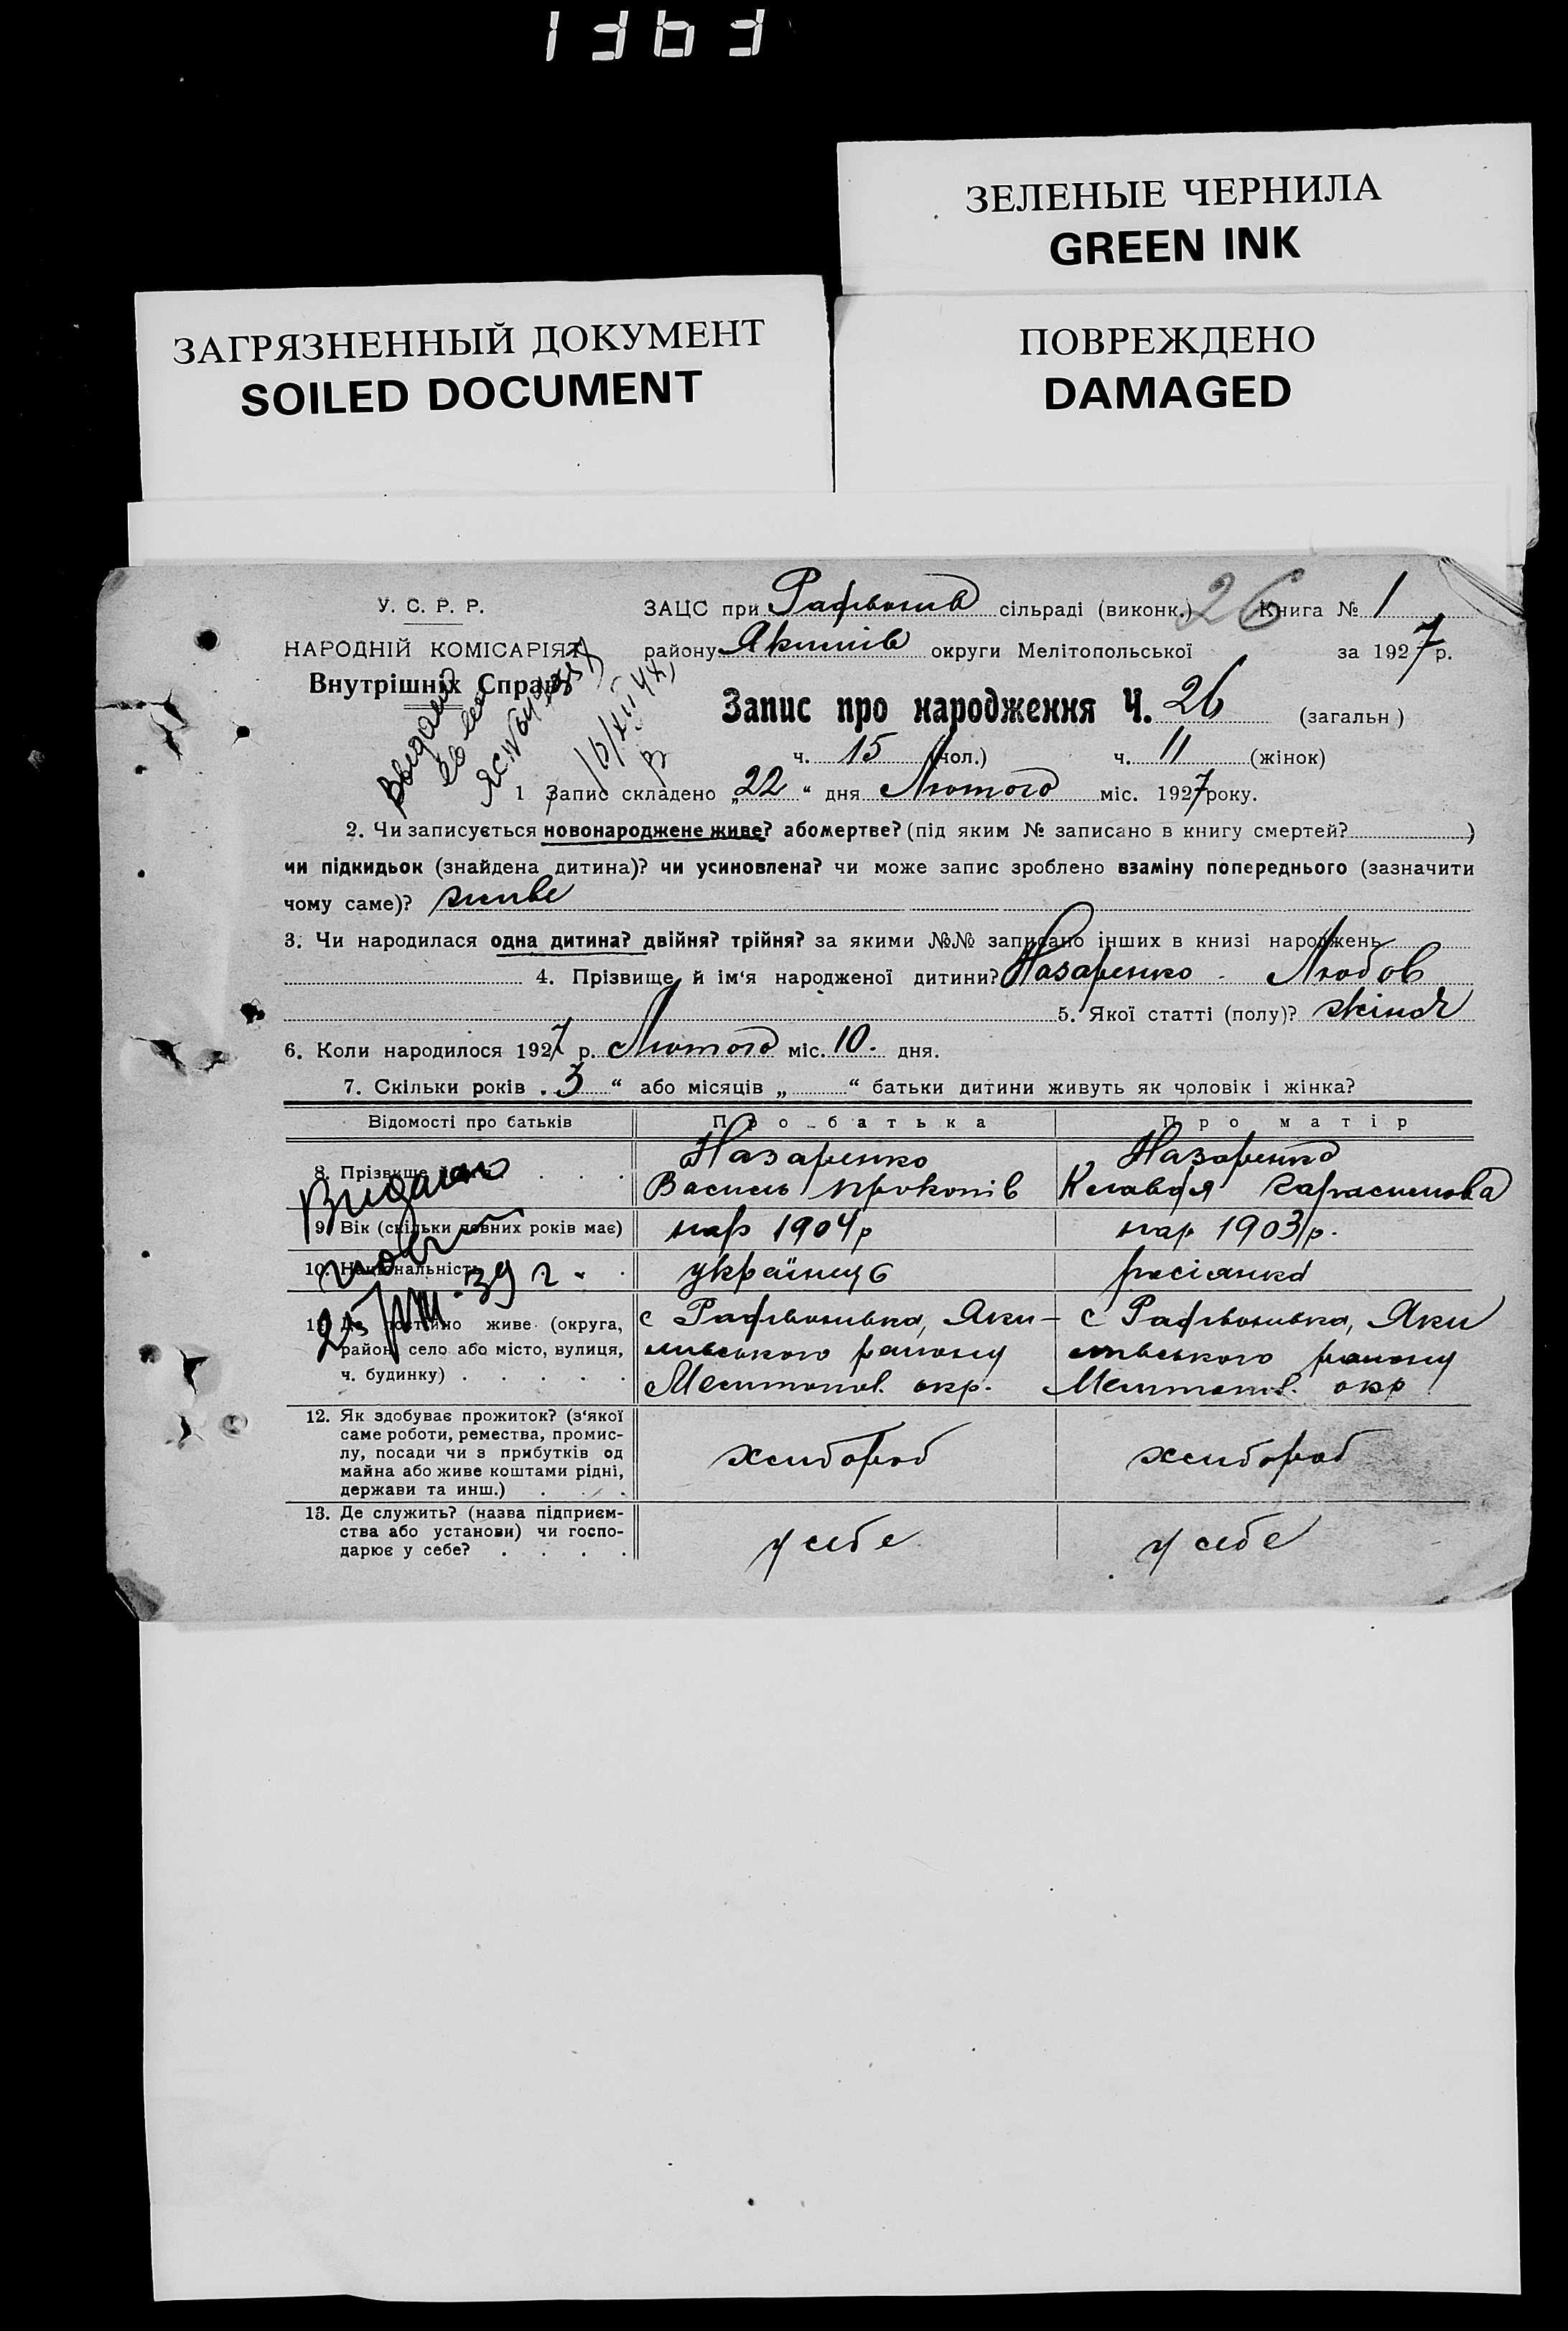 1363
ЗЕЛЕНЫЕ ЧЕРНИЛА
GREEN INK
ЗАГРЯЗНЕННЫЙ ДОКУМЕНТ
SOILED DOCUMENT
ПОВРЕЖДЕНО
DAMAGED
У. С. Р. Р.
НАРОДНІЙ КОМІСАРІЯТ
Внутрішніх Справ
ЗАЦС при сільраді (виконк.) 26 Книга № 1
району Якимів округи Мелітопольської за 1927 р.
Запис про народження Ч. 26 (загальн)
ч. 15 (чол.) ч. 11 (жінок)
1 Запис складено „22“ дня Лютого міс. 1927 року.
2. Чи записується новонароджене живе? або мертве? (під яким № записано в книгу смертей? )
чи підкидьок (знайдена дитина)? чи усиновлена? чи може запис зроблено взаміну попереднього (зазначити
чому саме)? живе
3. Чи народилася одна дитина? двійня? трійня? за якими №№ записано інших в книзі народжень
4. Прізвище й ім‘я народженої дитини? Назаренко - Любов
5. Якої статті (полу)? жіноч
6. Коли народилося 1927 р. Лютого міс. 10. дня.
7. Скільки років „3“ або місяців „ “ батьки дитини живуть як чоловік і жінка?
Відомості про батьків Про батька Про матір
8. Прізвище Назаренко Назаренко
Василь Прокопів Клавдія
9. Вік (скільки повних років має) нар 1904 р нар 1903 р.
10. Національність українец росіянка
11. Де постійно живе (округа, с Яки- с Яки
район, село або місто, вулиця, мивського району мивського району
ч. будинку) Мелитопол. окр. Мелитопол. окр
12. Як здобуває прожиток? (з‘якої
саме роботи, ремества, промис-
лу, посади чи з прибутків од хлибороб хлибороб
майна або живе коштами рідні,
держави та инш.)
13. Де служить? (назва підприєм-
ства або установи) чи госпо- у себе у себе
дарює у себе?
Видано
39 г.